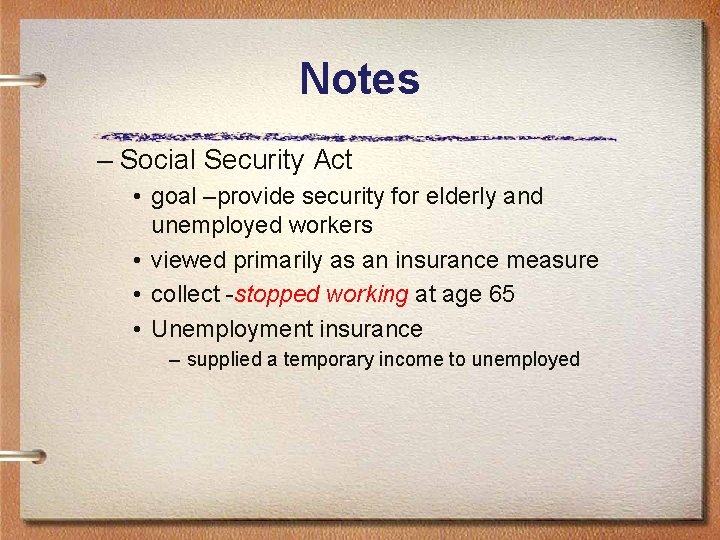 Notes
– Social Security Act
• goal –provide security for elderly and
unemployed workers
• viewed primarily as an insurance measure
• collect -stopped working at age 65
• Unemployment insurance
– supplied a temporary income to unemployed